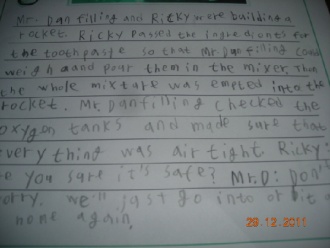 Mr. Danfilling and Ricky were building a
rocket. Ricky passed the ingredients for
the toothpaste so that Mr Danfilling could
weigh aand pour them in the mixer. Then
the whole mixture was empted into the
rocket. Mr. Danfilling checked the
oxygen tanks and made sure that
very thing was air tight. Ricky:
re you sure it's safe? Mr.D: Don't
orry. we'll just go into orbit a
none again.
29.12.2011